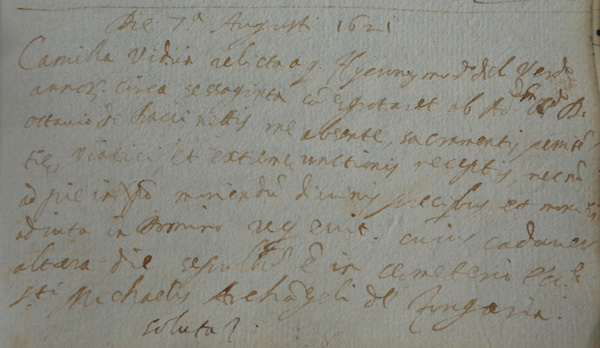 Die 7ª Augusti 1621
Camilla Vidua relicta q. Hyeronymo del Verde
annor. circa sexaginta cū egrotaret ab Ad. D.
Octavio de me absente, sacramentis penitē
tie, Viatici, et extreme unctionis receptis, necnō
ad pie in Xpō moriendū divinis precibus et
adiuta in Domino cuius cadaver
altera die sepultū ē in cemeterio Ecc.
S.ti Michaelis Archāgeli de
soluta